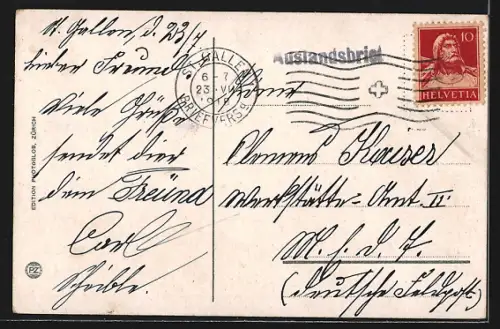 St. Gallen, d. 23/7
Lieber Freund
Viele Grüße
sendet dier
dein Freund
Carl
Schöble.
ST. GALLEN
6-7
23. VII
BRIEFVERS.
Auslandsbrief
10
HELVETIA
Herrn
Clemens Kayser
Werkstätte-Amt II
M. f. d. F.
(deutsche Feldpost)
EDITION PHOTOGLOB, ZÜRICH
PZ